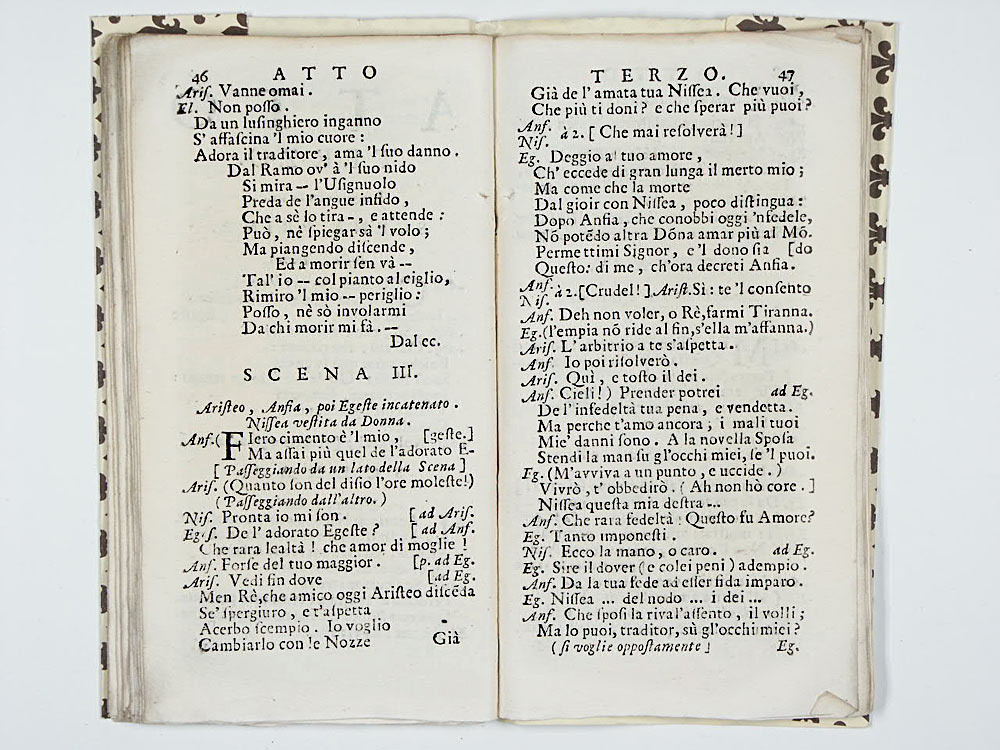 46 ATTO
Ariſ. Vanne omai.
El. Non poſſo.
Da un luſinghiero inganno
S' affaſcina 'l mio cuore:
Adora il traditore, ama 'l ſuo danno.
Dal Ramo ov' à 'l ſuo nido
Si mira -- l'Uſignuolo
Preda de l'angue infido,
Che a sè lo tira -, e attende:
Può, nè ſpiegar sà 'l volo;
Ma piangendo diſcende,
Ed a morir ſen và --
Tal' io -- col pianto al ciglio,
Rimiro 'l mio -- periglio:
Poſſo, nè sò involarmi
Da chi morir mi fà. --
Dal ec.
SCENA III.
Ariſteo, Anſia, poi Egeſte incatenato.
Niſſea veſtita da Donna.
Anſ.(FIero cimento è'l mio, [geſte.]
Ma aſſai più quel de l'adorato E-
[ Paſſeggiando da un lato della Scena ]
Ariſ. (Quanto ſon del diſio l'ore moleſte!)
( Paſſeggiando dall'altro. )
Niſ. Pronta io mi ſon. [ad Ariſ.
Egiſ. De l' adorato Egeſte? [ ad Anſ.
Che rara lealtà! che amor di moglie!
Anſ. Forſe del tuo maggior. [p. ad Eg.
Ariſ. Vedi ſin dove [ad Eg.
Men Rè, che amico oggi Ariſteo diſcẽda
Se' ſpergiuro, e t'aſpetta
Acerbo ſcempio. Io voglio
Cambiarlo con le Nozze Già
TERZO. 47
Già de l' amata tua Niſſea. Che vuoi,
Che più ti doni? e che ſperar più puoi?
Anſ.
Niſ. à 2. [ Che mai reſolverà!]
Eg. Deggio al tuo amore,
Ch' eccede di gran lunga il merto mio;
Ma come che la morte
Dal gioir con Niſſea, poco diſtingua:
Dopo Anſia, che conobbi oggi 'nfedele,
Nõ potẽdo altra Dõna amar più al Mõ.
Permettimi Signor, e 'l dono ſia [do
Queſto: di me, ch'ora decreti Anſia.
Anſ.
Niſ. à 2.[Crudel!].Ariſt.Sì: te 'l conſento
Anſ. Deh non voler, o Rè, farmi Tiranna.
Eg.(l'empia nõ ride al fin,s'ella m'affanna.)
Ariſ. L' arbitrio a te s'aſpetta.
Anſ. Io poi riſolverò.
Ariſ. Quì, e toſto il dei.
Anſ. Cieli!) Prender potrei ad Eg.
De l' infedeltà tua pena, e vendetta.
Ma perche t'amo ancora; i mali tuoi
Mie' danni ſono. A la novella Spoſa
Stendi la man ſu gl'occhi miei, ſe 'l puoi.
Eg. (M'avviva a un punto, e uccide.)
Vivrò, t' obbedirò. ( Ah non hò core. ]
Niſſea queſta mia deſtra --.
Anſ. Che rara fedeltà! Queſto fu Amore?
Eg. Tanto imponeſti.
Niſ. Ecco la mano, o caro. ad Eg.
Eg. Sire il dover ( e colei peni ) adempio.
Anſ. Da la tua fede ad eſſer fida imparo.
Eg. Niſſea ... del nodo ... i dei ...
Anſ. Che ſpoſi la rival'aſſento, il volli;
Ma lo puoi, traditor, sù gl'occhi miei?
( ſi voglie oppoſtamente ] Eg.